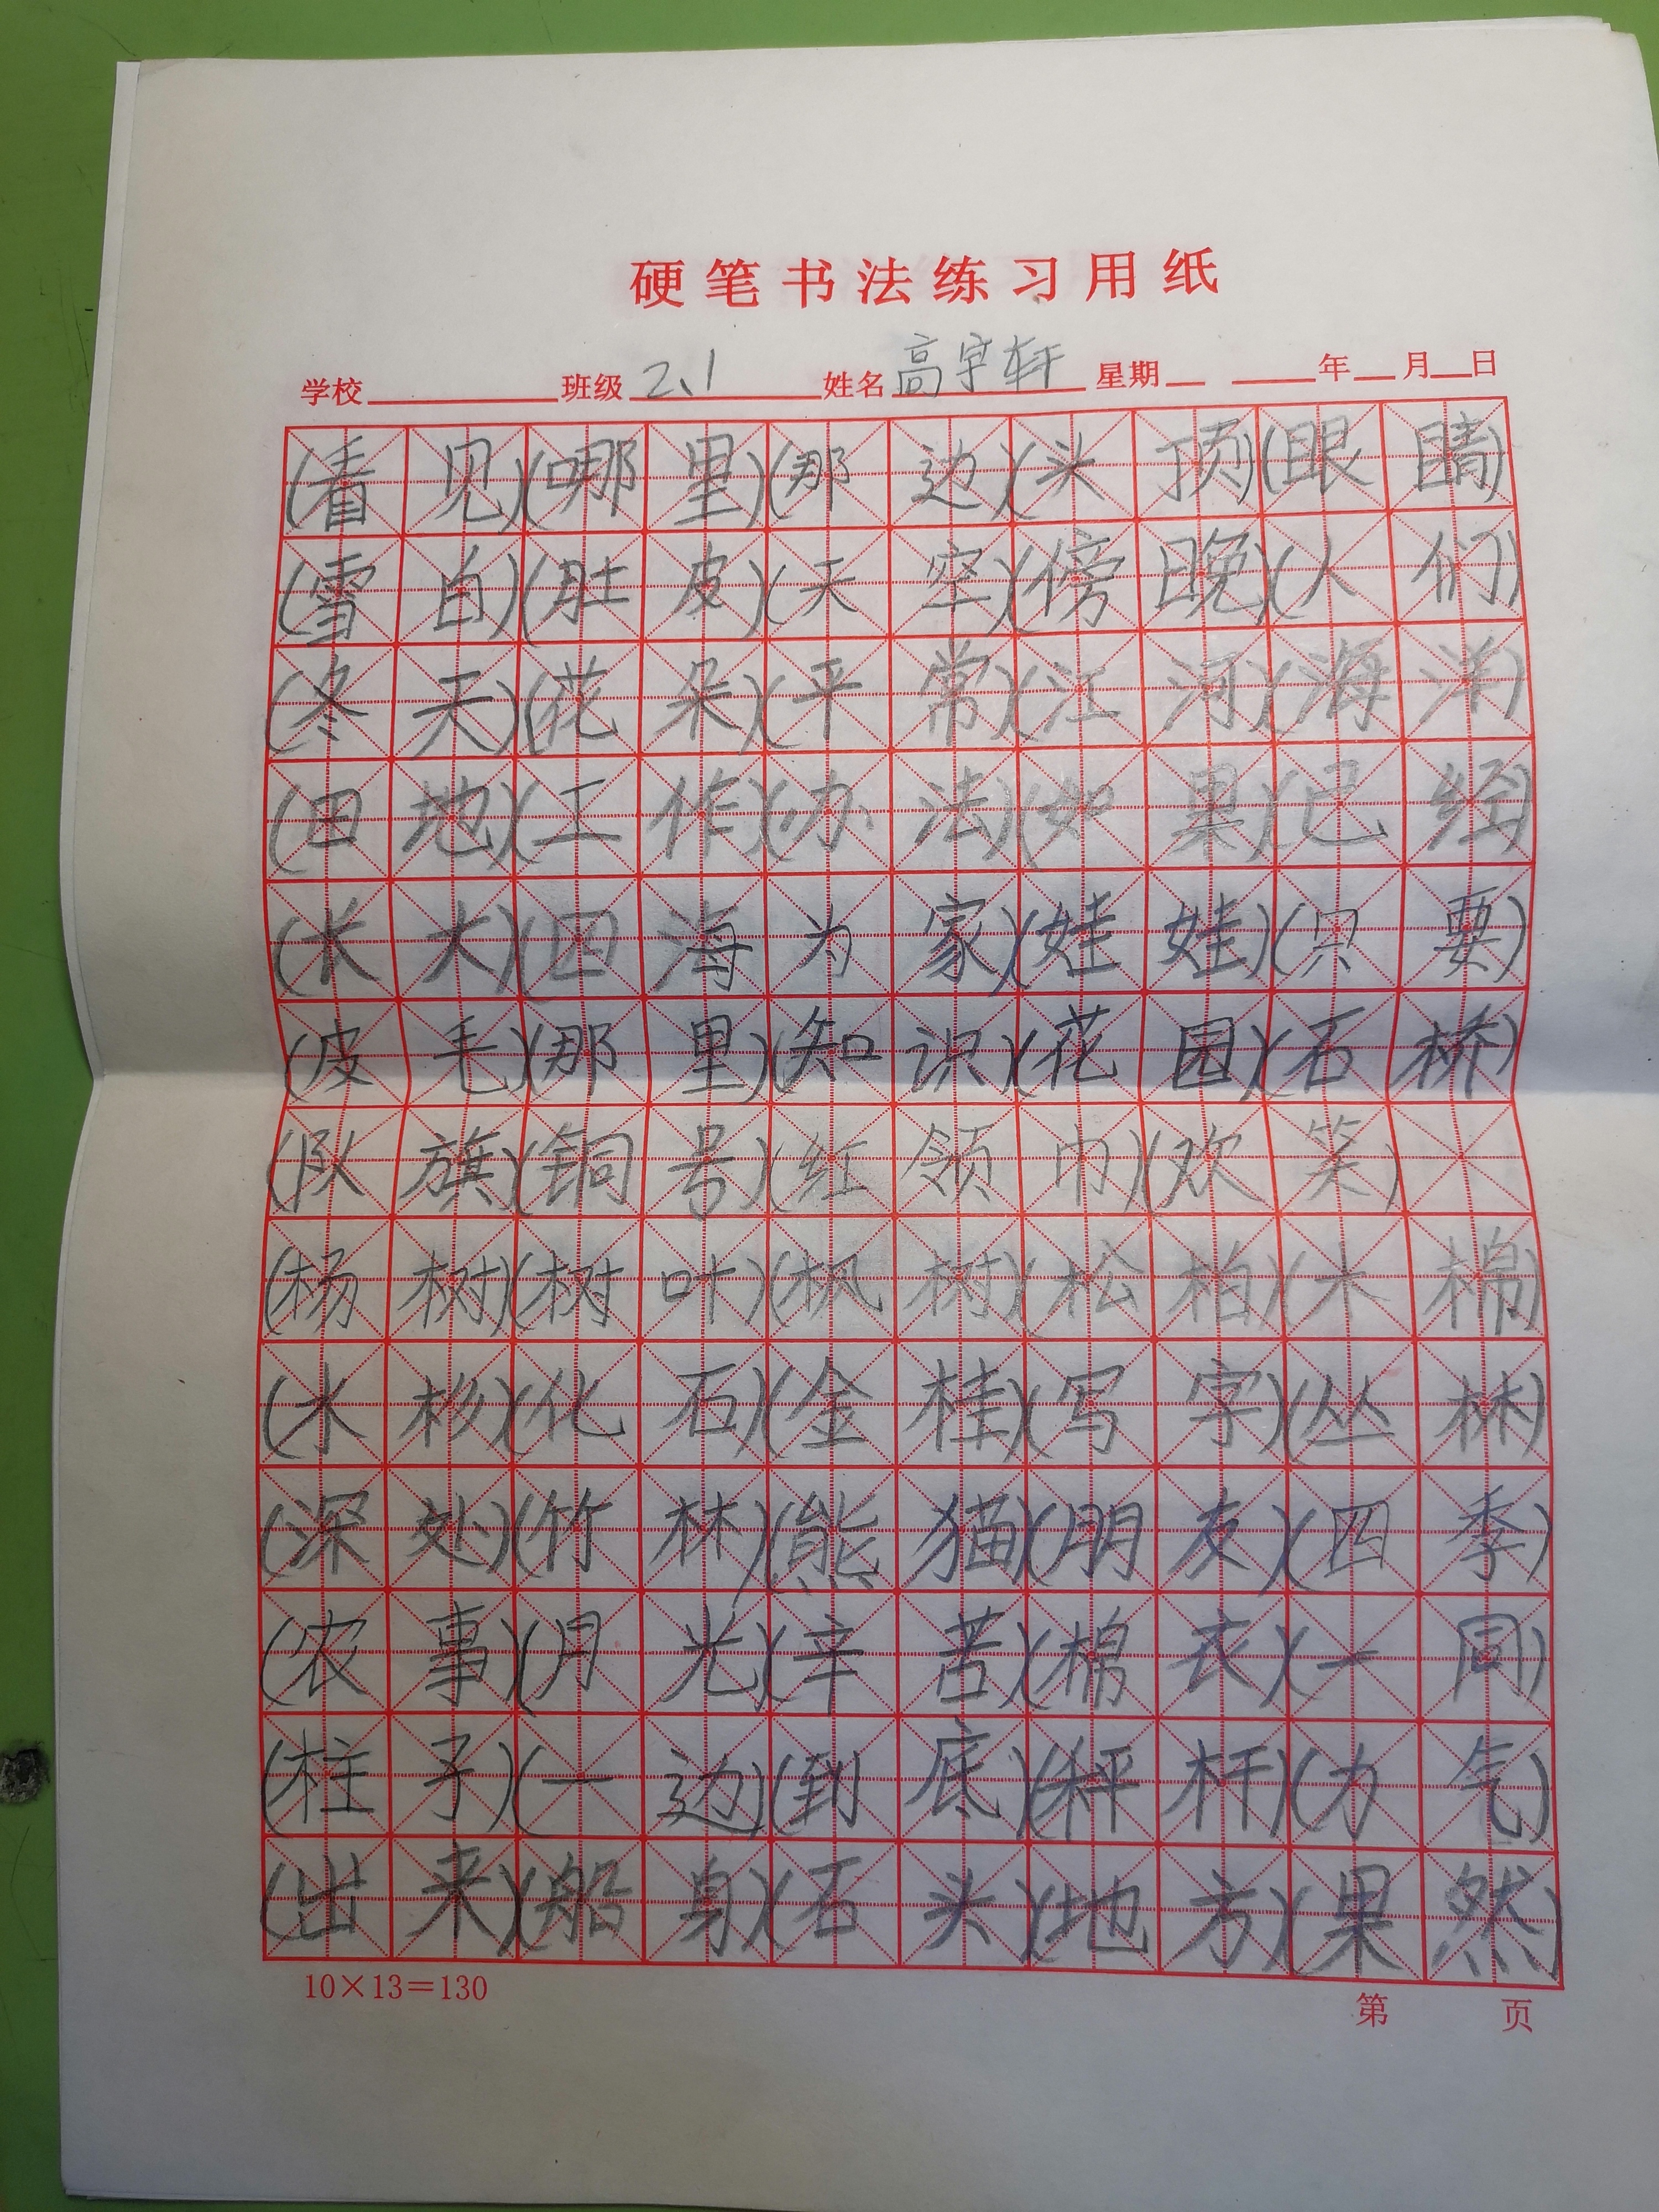 硬笔书法练习用纸
学校 班级 2、1 姓名 高宇轩 星期 年 月 日
(看见)(哪里)(那边)(头顶)(眼睛)
(雪白)(肚皮)(天空)(傍晚)(人们)
(冬天)(花朵)(平常)(江河)(海洋)
(田地)(工作)(办法)(如果)(已经)
(长大)(四海为家)(娃娃)(只要)
(皮毛)(那里)(知识)(花园)(石桥)
(队旗)(铜号)(红领巾)(欢笑)
(杨树)(树叶)(枫树)(松柏)(木棉)
(水杉)(化石)(金桂)(写字)(丛林)
(深处)(竹林)(熊猫)(朋友)(四季)
(农事)(月光)(辛苦)(棉衣)(一同)
(柱子)(一边)(到底)(秤杆)(力气)
(出来)(船身)(石头)(地方)(果然)
10×13=130
第 页